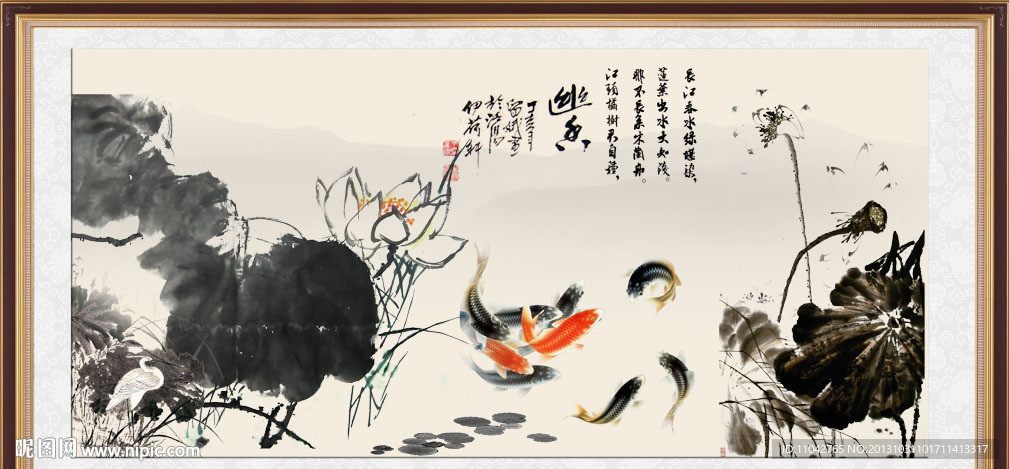 長江春水綠堪染，
蓮葉出水大如錢。
那不長系木蘭船。
江頭橘樹君自種，
幽香
伊荷軒
昵图网 www.nipic.com
ID:11042765 NO:20131031101711413317